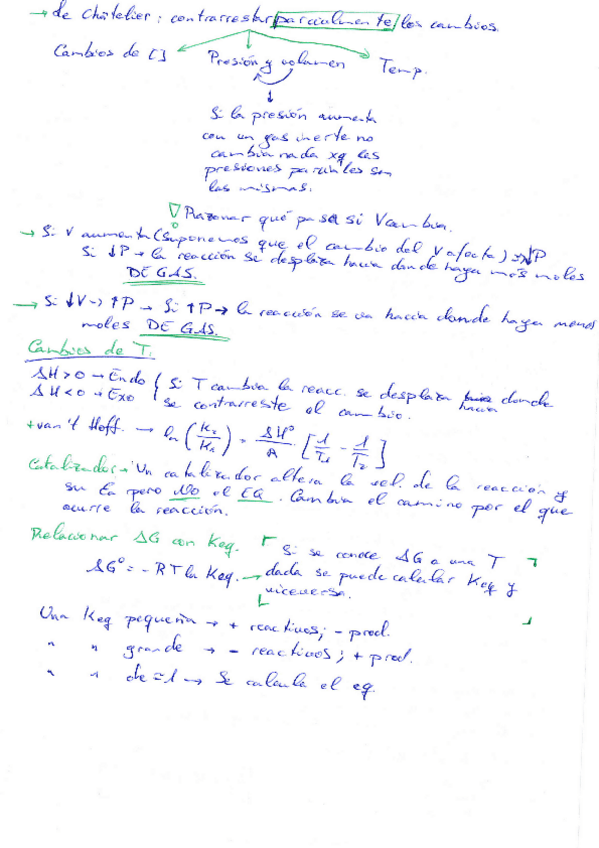 → de Châtelier: contrarrestar parcialmente los cambios.
Cambios de [] Presión y volumen Temp.
Si la presión aumenta
con un gas inerte no
cambia nada xq las
presiones parciales son
las mismas.
Razonar qué pasa si V cambia.
→ Si V aumenta (suponemos que el cambio del V afecta) → ↓P
Si ↓P → la reacción se desplaza hacia donde haya más moles
DE GAS.
→ Si ↓V → ↑P → Si ↑P → la reacción se va hacia donde haya menos
moles DE GAS.
Cambios de T.
ΔH > 0 → Endo { Si T cambia la reacc. se desplaza hacia donde
ΔH < 0 → Exo se contrarreste el cambio.
+ van't Hoff. → ln (K₂/K₁) = ΔH°/R [1/T₁ - 1/T₂]
Catalizador → Un catalizador altera la vel. de la reacción y
su Ea pero NO el EQ. Cambia el camino por el que
ocurre la reacción.
Relacionar ΔG con Keq. Si se conoce ΔG a una T
ΔG° = -RT ln Keq. → dada se puede calcular Keq y
viceversa.
Una Keq pequeña → + reactivos; - prod.
" " grande → - reactivos; + prod.
" " de = 1 → Se calcula el eq.